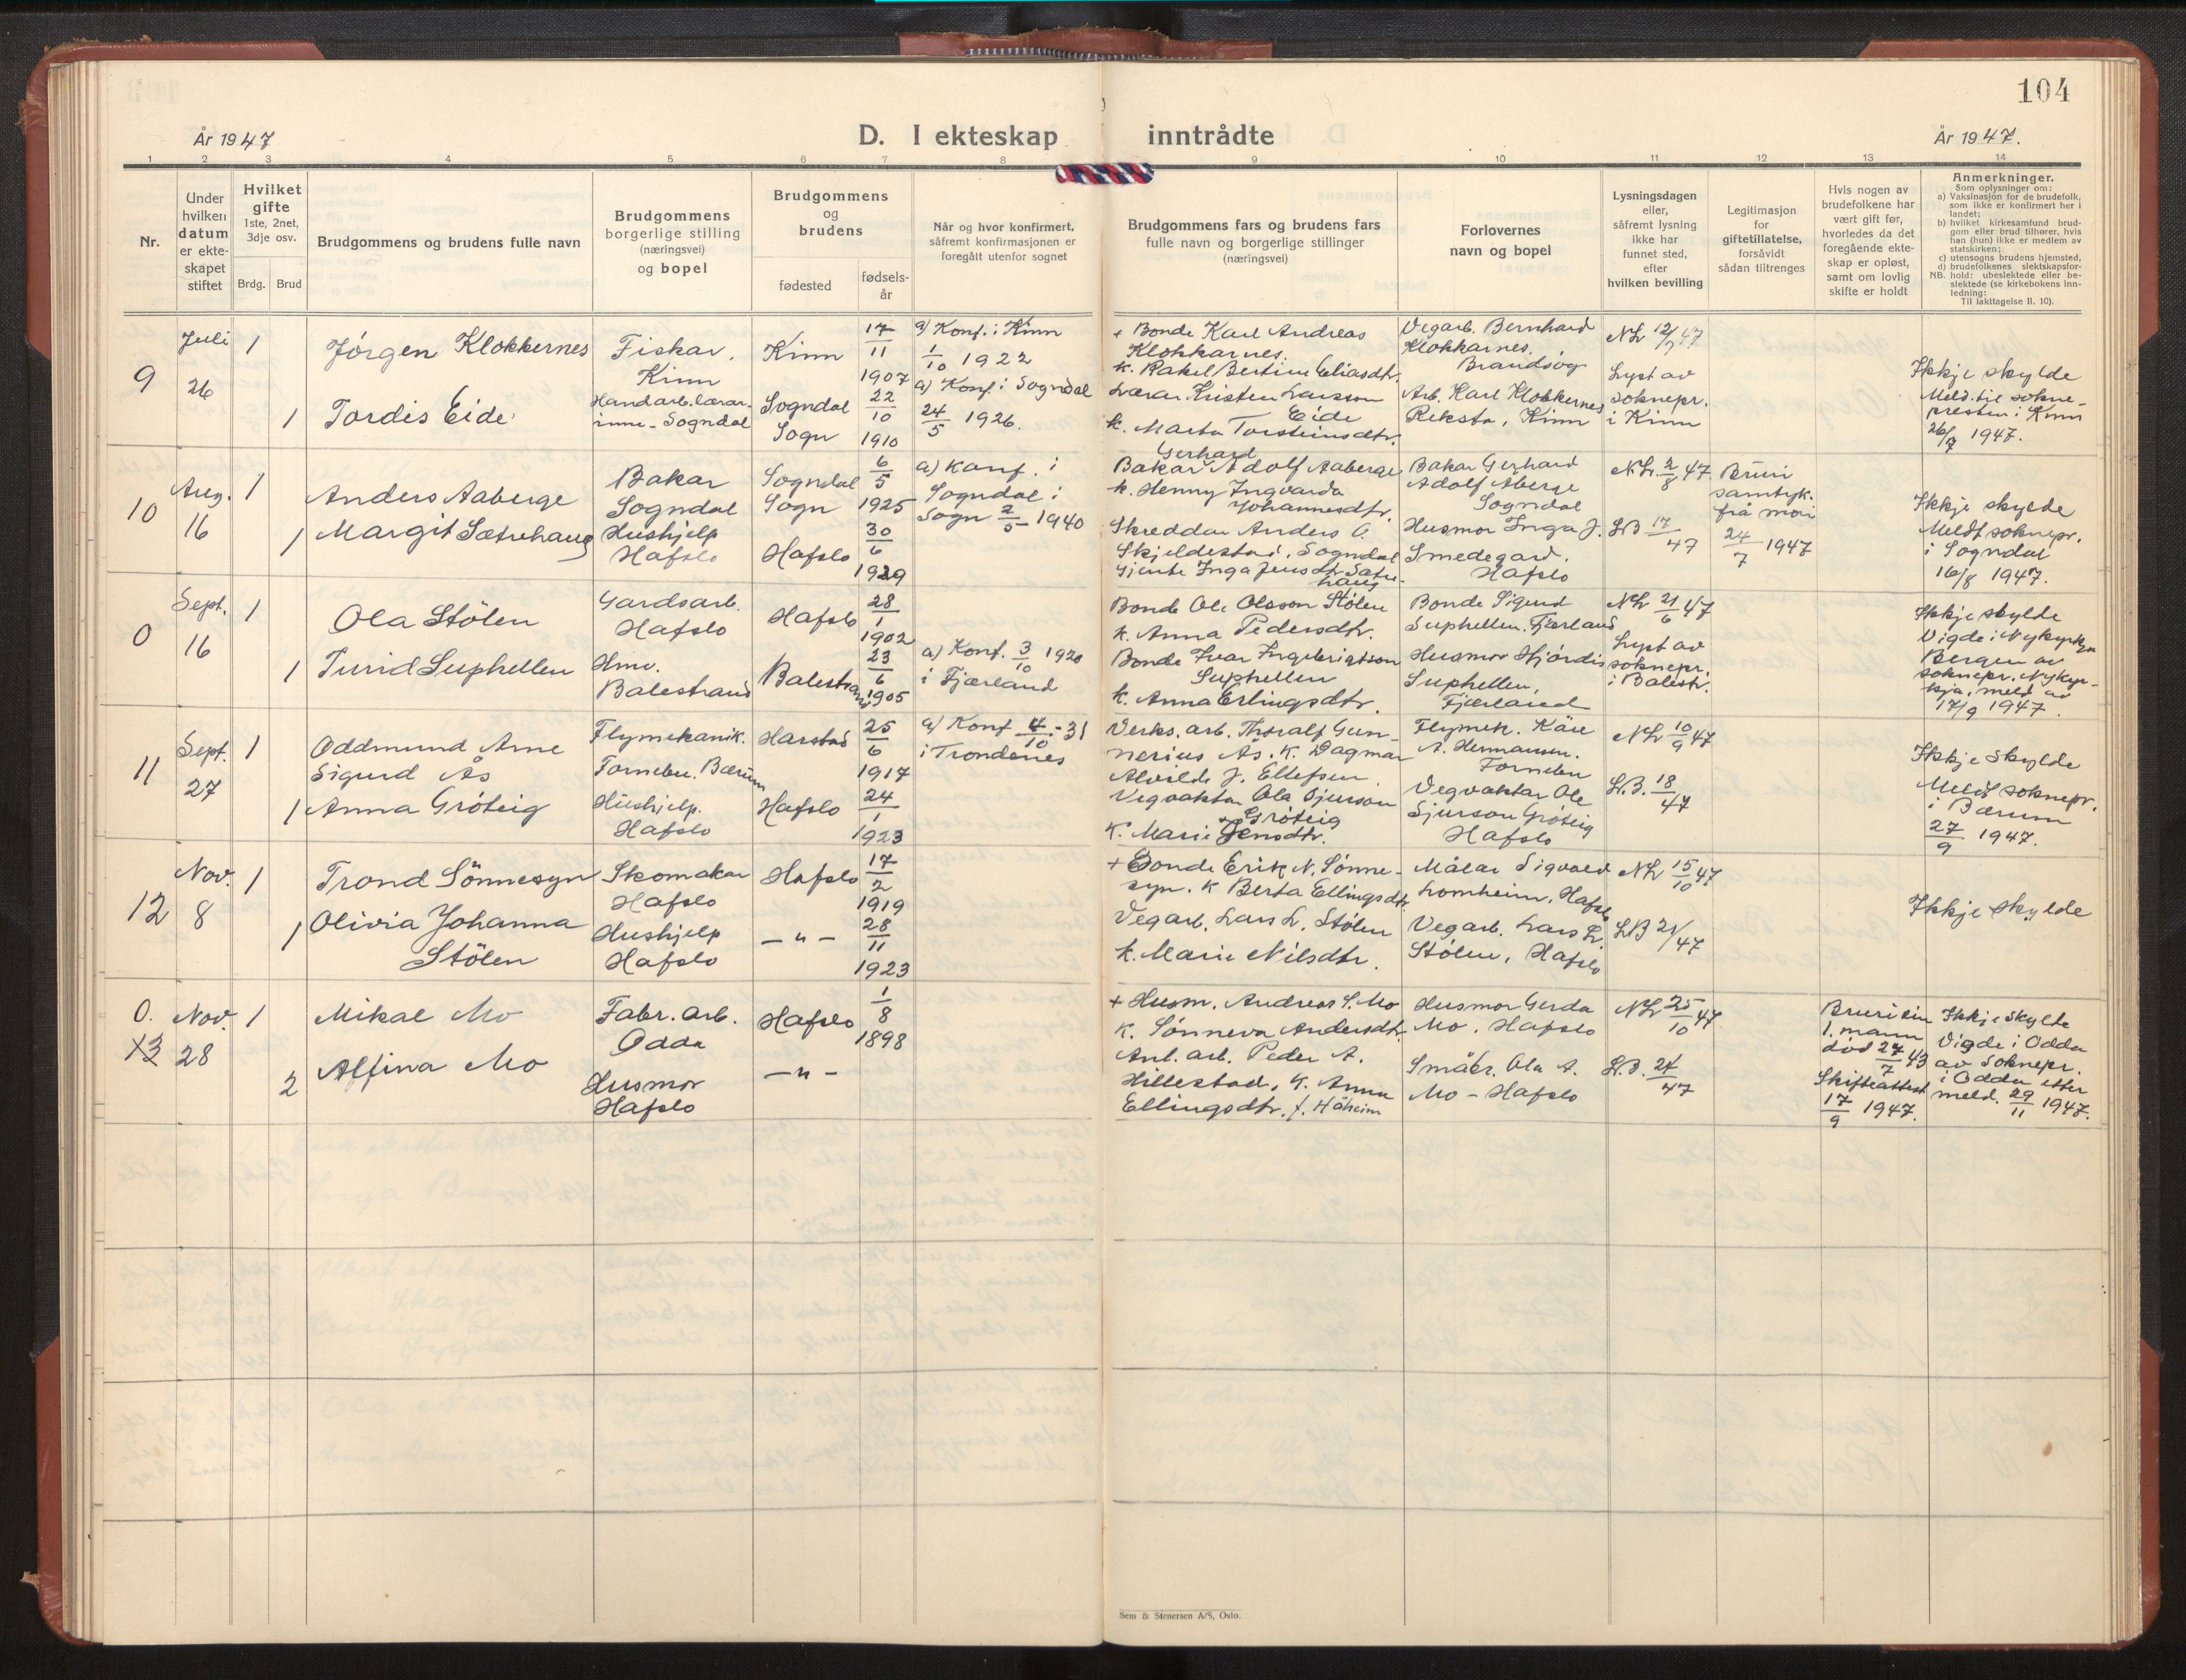 104
År 1947
D. I ekteskap inntrådte
År 1947.
1 2 3 4 5 6 7 8 9 10 11 12 13 14
Nr.
Under hvilken datum er ekte-skapet stiftet
Hvilket gifte
1ste, 2net, 3dje osv.
Brdg. Brud
Brudgommens og brudens fulle navn
Brudgommens borgerlige stilling (næringsvei) og bopel
Brudgommens og brudens
fødested
fødsels-år
Når og hvor konfirmert, såfremt konfirmasjonen er foregått utenfor sognet
Brudgommens fars og brudens fars fulle navn og borgerlige stillinger (næringsvei)
Forlovernes navn og bopel
Lysningsdagen eller, såfremt lysning ikke har funnet sted, efter hvilken bevilling
Legitimasjon for giftetillatelse, forsåvidt sådan tiltrenges
Hvis nogen av brudefolkene har vært gift før, hvorledes da det foregående ekte-skap er opløst, samt om lovlig skifte er holdt
Anmerkninger.
Som oplysninger om:
a) Vaksinasjon for de brudefolk, som ikke er konfirmert her i landet;
b) hvilket kirkesamfund brud-gom eller brud tilhører, hvis han (hun) ikke er medlem av statskirken;
c) utensogns brudens hjemsted,
d) brudefolkenes slektskapsfor-hold: ubeslektede eller be-slektede (se kirkebokens inn-ledning:
NB.
Til iakttagelse II. 10).
9
Juli 26
1
Jørgen Klokkernes
Fiskar. Kinn
Kinn
17/11 1907
a) Konf. i Kinn 1/10 1922
+ Bonde Karl Andreas Klokkarnes.
k. Rakel Bertine Eliasdtr.
Vegarb. Bernhard Klokkarnes. Brandsøy
NL 12/7 47
Lyst av soknepr. i Kinn
Ikkje skylde
Meld. til sokne-presten i Kinn 26/7 1947.
1
Tordis Eide
Handarb.lærar-inne - Sogndal
Sogndal Sogn
22/10 1910
a) Konf. i Sogndal 24/5 1926.
Lærar Kristen Larsson Eide
k. Marta Torsteinsdtr.
Arb. Karl Klokkernes Reksta, Kinn
10
Aug. 16
1
Anders Aaberge
Bakar Sogndal
Sogndal Sogn
6/5 1925
a) Konf. i Sogndal i Sogn 2/5 - 1940
Gerhard
Bakar Adolf Aaberge
k. Henny Ingvarda Johannesdtr.
Bakar Gerhard Adolf Aberge Sogndal
NL. 2/8 47.
Bruri samtyk. frå mori 24/7 1947
Ikkje skylde
Meldt soknepr. i Sogndal 16/8 1947.
1
Margit Sætrehaug
Hushjelp Hafslo
Hafslo
30/6 1929
Skreddar Anders O. Skjeldestad, Sogndal
Gjente Inga Jensdtr. Sætre-haug
Husmor Inga J. Smedegard. Hafslo
LB 17/47
0
Sept. 16
1
Ola Stölen
Gardsarb. Hafslo
Hafslo
28/1 1902
Bonde Ole Olsson Stölen
k. Anna Pedersdtr.
Bonde Sigurd Suphellen. Fjærland
NL 21/6 47
Lyst av soknepr. i Balestr.
Ikkje skylde
Vigde i Nykyrkja Bergen av soknepr. Nykyr-kja, meld av 17/9 1947.
1
Turid Suphellen
Hmv. Balestrand
Balestrand
23/6 1905
a) Konf. 3/10 1920 i Fjærland
Bonde Ivar Ingebrigtson Suphellen
k. Anna Erlingsdtr.
Husmor Hjördis Suphellen, Fjærland
11
Sept. 27
1
Oddmund Arne Sigurd Ås
Flymekanik. Fornebu. Bærum
Harstad
25/6 1917
a) Konf 4/10 - 31 i Trondenes
Verks. arb. Thoralf Gun-nerius Ås. K. Dagmar Alvilde J. Ellefsen
Flymek. Kåre A. Hermansen. Fornebu
NL 10/9 47
Ikkje skylde
Meldt soknepr. i Bærum 27/9 1947.
1
Anna Gröteig
Hushjelp. Hafslo
Hafslo
24/1 1923
Vegvaktar Ola Sjurson Gröteig
K. Marie Jensdtr.
Vegvaktar Ole Sjurson Gröteig Hafslo
L.B. 18/47
12
Nov. 8
1
Trond Sönnesyn
Skomakar Hafslo
Hafslo
17/2 1919
+ Bonde Erik N. Sönne-syn. K Berta Ellingsdtr.
Målar Sigvald Lomheim, Hafslo
NL 15/10 47
Ikkje skylde
1
Olivia Johanna Stölen
Hushjelp Hafslo
— " —
28/11 1923
Vegarb. Lars L. Stölen
k. Marie Nilsdtr.
Vegarb. Lars L. Stölen, Hafslo
LB 21/47
0.
13
Nov. 28
1
Mikal Mo
Fabr. arb. Odda
Hafslo
1/8 1898
+ Husm. Andreas S. Mo
K. Sönneva Andersdtr.
Husmor Gerda Mo. Hafslo
NL 25/10 47
Bruri sin 1. mann död 27/7 43
Skifteattest 17/9 1947.
Ikkje skylte
Vigde i Odda av Soknepr. i Odda etter meld. 29/11 1947.
2
Alfina Mo
Husmor Hafslo
— " —
Anl. arb. Peder A. Hillestad, K. Anna Ellingsdtr. f. Håheim
Småbr. Ola A. Mo - Hafslo
L.B. 24/47
Sem & Stenersen A/S, Oslo.